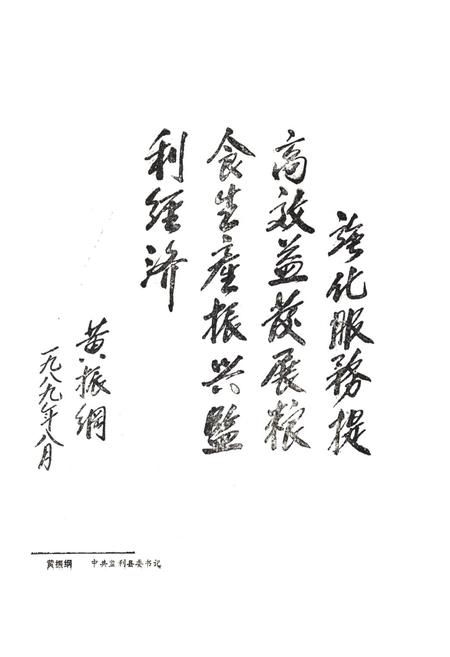 强化服務提
高效益发展粮
食生產振兴監
利經济
黄振綱
一九八九年八月
黄振纲　中共监利县委书记